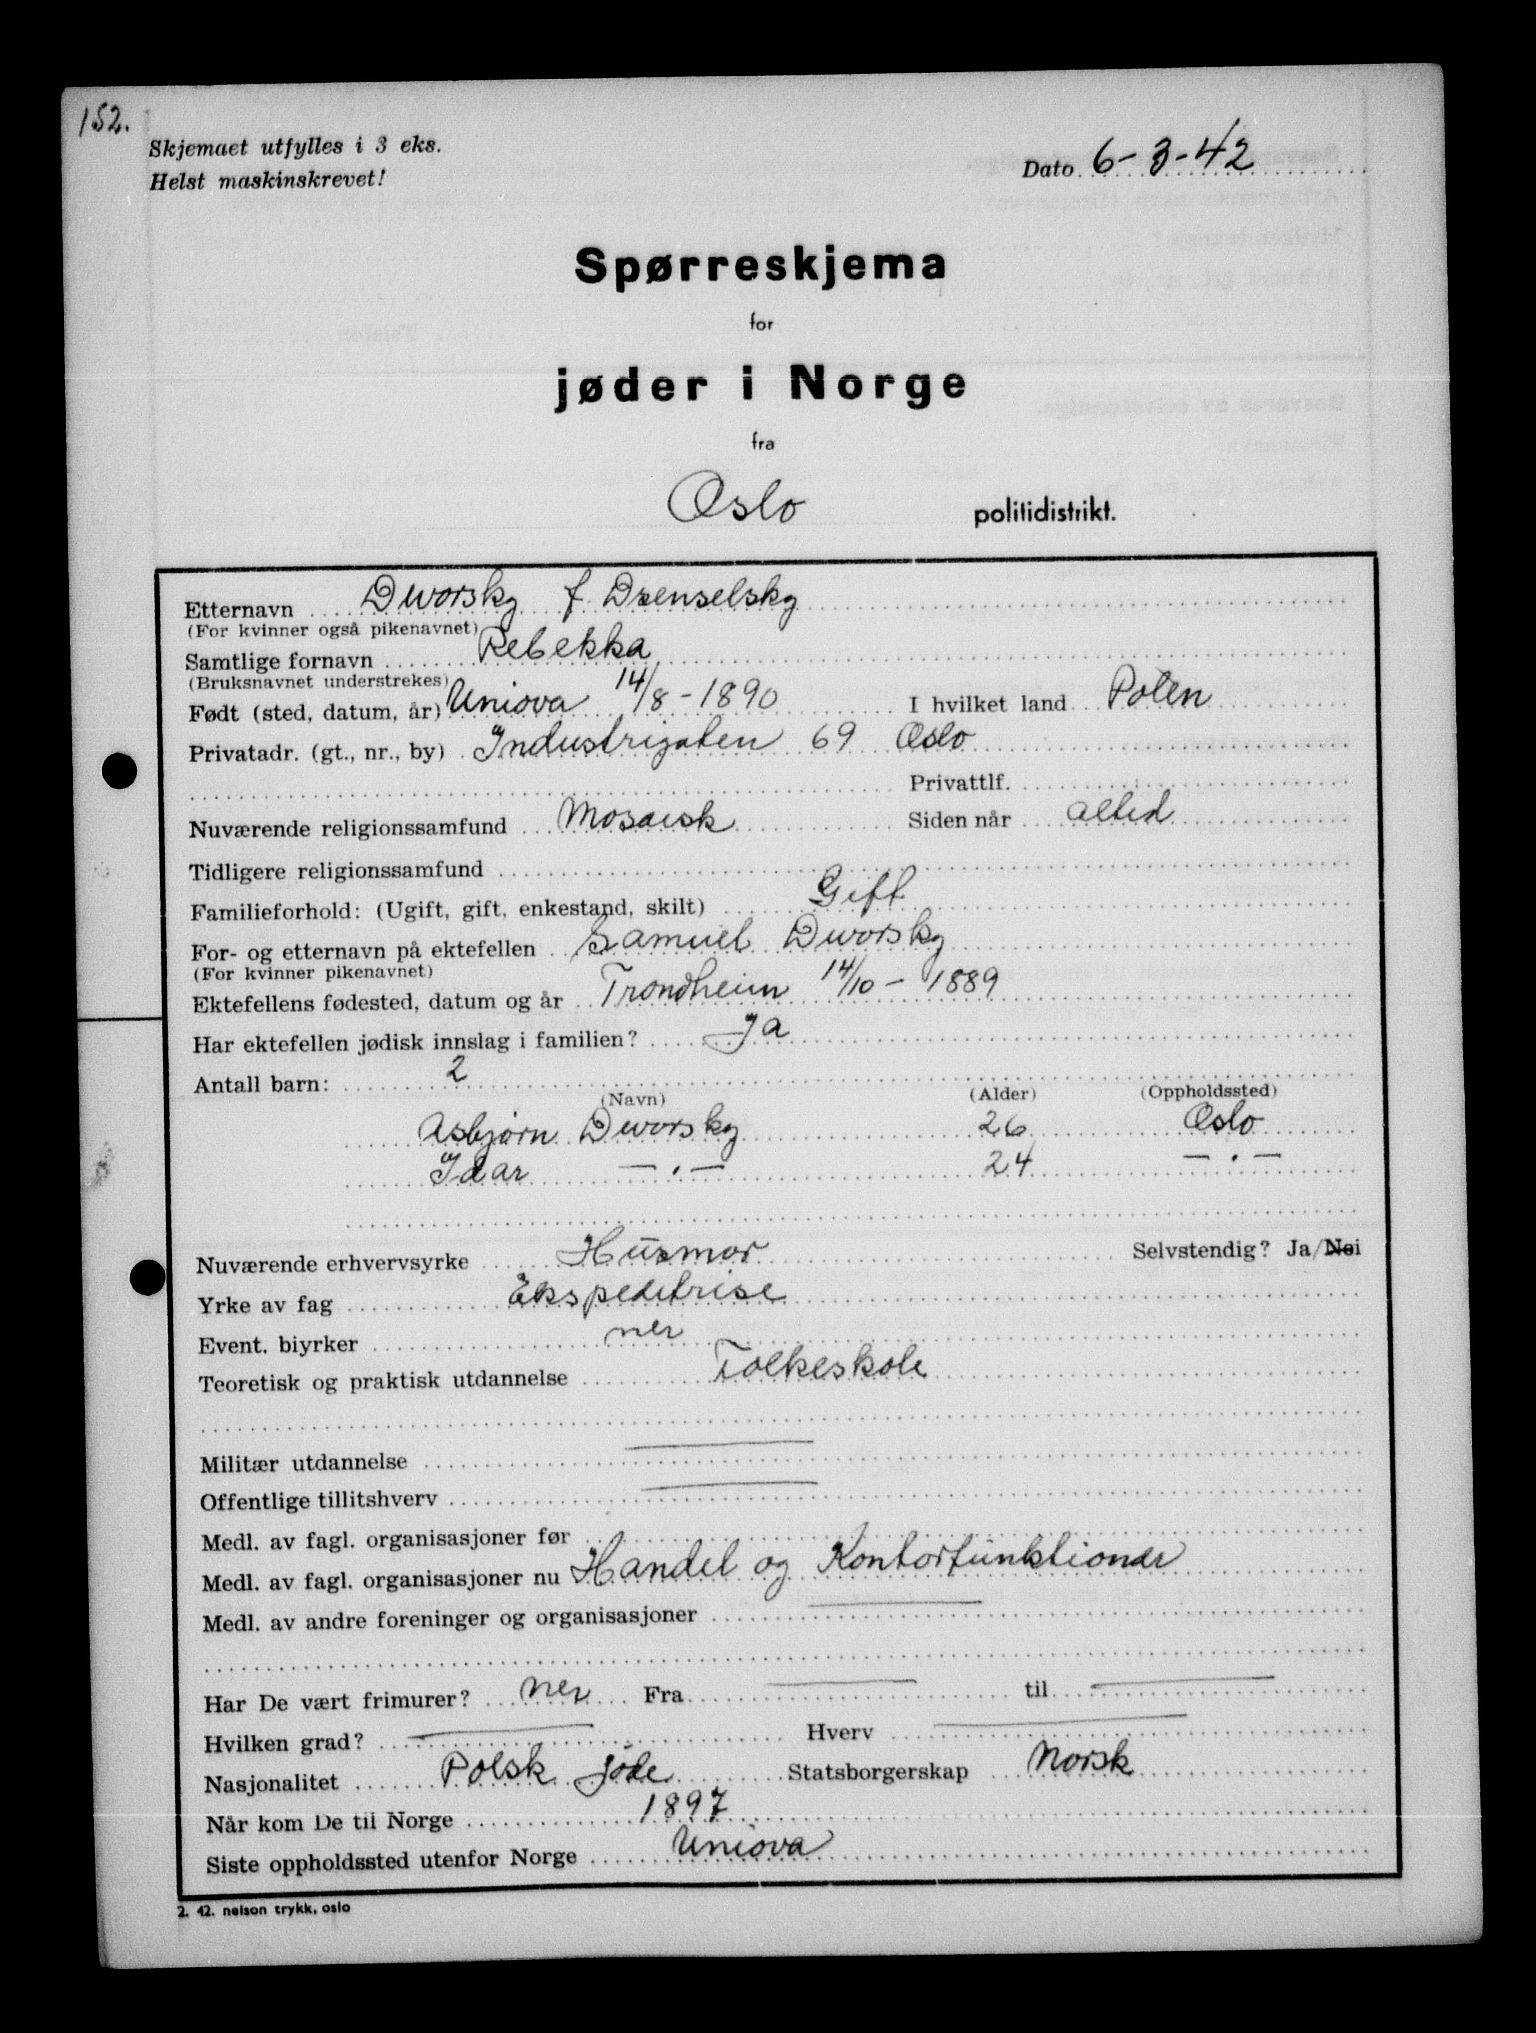 152.
Skjemaet utfylles i 3 eks.
Helst maskinskrevet!
Dato 6-3-42
Spørreskjema
for
jøder i Norge
fra
Oslo politidistrikt.
Etternavn Dworsky f. Dsenselsky
(For kvinner også pikenavnet)
Samtlige fornavn Rebekka
(Bruksnavnet understrekes)
Født (sted, datum, år) Uniova 14/8-1890 I hvilket land Polen
Privatadr. (gt., nr., by) Industrigaten 69 Oslo
Privattlf.
Nuværende religionssamfund Mosaisk Siden når altid
Tidligere religionssamfund
Familieforhold: (Ugift, gift, enkestand, skilt) Gift
For- og etternavn på ektefellen Samuel Dworsky
(For kvinner pikenavnet)
Ektefellens fødested, datum og år Trondheim 14/10-1889
Har ektefellen jødisk innslag i familien? Ja
Antall barn: 2
(Navn) (Alder) (Oppholdssted)
Asbjørn Dworsky 26 Oslo
Idar —.— 24 —.—
Nuværende erhvervsyrke Husmor Selvstendig? Ja/Nei
Yrke av fag Ekspeditrise
Event. biyrker nei
Teoretisk og praktisk utdannelse Folkeskole
Militær utdannelse —
Offentlige tillitshverv —
Medl. av fagl. organisasjoner før
Medl. av fagl. organisasjoner nu Handel og Kontorfunktionær
Medl. av andre foreninger og organisasjoner —
Har De vært frimurer? nei Fra — til —
Hvilken grad? — Hverv —
Nasjonalitet Polsk jøde Statsborgerskap Norsk
Når kom De til Norge 1897
Siste oppholdssted utenfor Norge Uniova
2. 42. nelson trykk, oslo